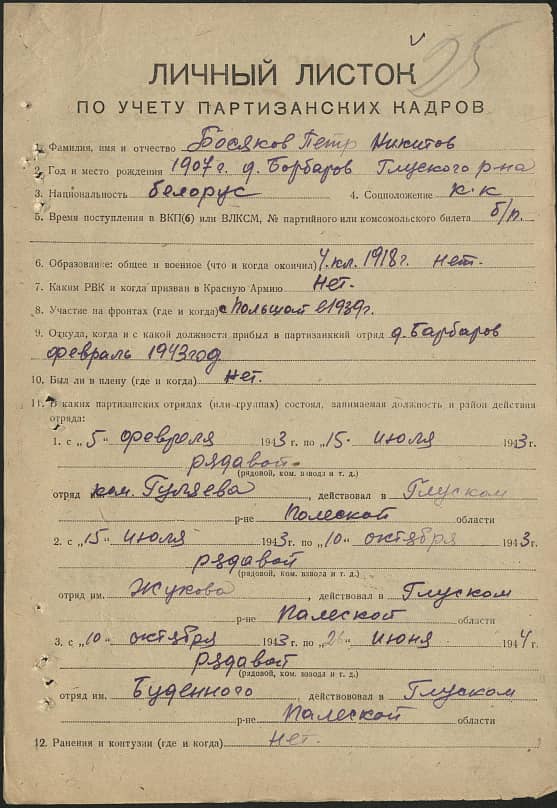 25
ЛИЧНЫЙ ЛИСТОК
ПО УЧЕТУ ПАРТИЗАНСКИХ КАДРОВ
1. Фамилия, имя и отчество Босяков Петр Никитов
2. Год и место рождения 1907 г. д. Борбаров Глуского р-на
3. Национальность белорус 4. Соцположение к-к
5. Время поступления в ВКП(б) или ВЛКСМ, № партийного или комсомольского билета б/п.
6. Образование: общее и военное (что и когда окончил) 4 кл. 1918 г. нет.
7. Каким РВК и когда призван в Красную Армию Нет.
8. Участие на фронтах (где и когда) с Польшой в 1939 г.
9. Откуда, когда и с какой должности прибыл в партизанкий отряд д. Барбаров
февраль 1943 год
10. Был ли в плену (где и когда) Нет.
11. В каких партизанских отрядах (или группах) состоял, занимаемая должность и район действия
отряда:
1. с „5" февраля 1943 г. по „15" июля 1943 г.
рядавой
(рядовой, ком. взвода и т. д.)
отряд ком. Гуляева, действовал в Глуском
р-не Полеской области
2. с „15" июля 1943 г. по „10" октября 1943 г.
рядавой
(рядовой, ком. взвода и т. д.)
отряд им. Жукова, действовал в Глуском
р-не Палеской области
3. с „10" октября 1943 г. по „26" июня 1944 г.
рядавой
(рядовой, ком. взвода и т. д.)
отряд им. Буденного, действововал в Глуском
р-не Палеской области
12. Ранения и контузии (где и когда) нет.